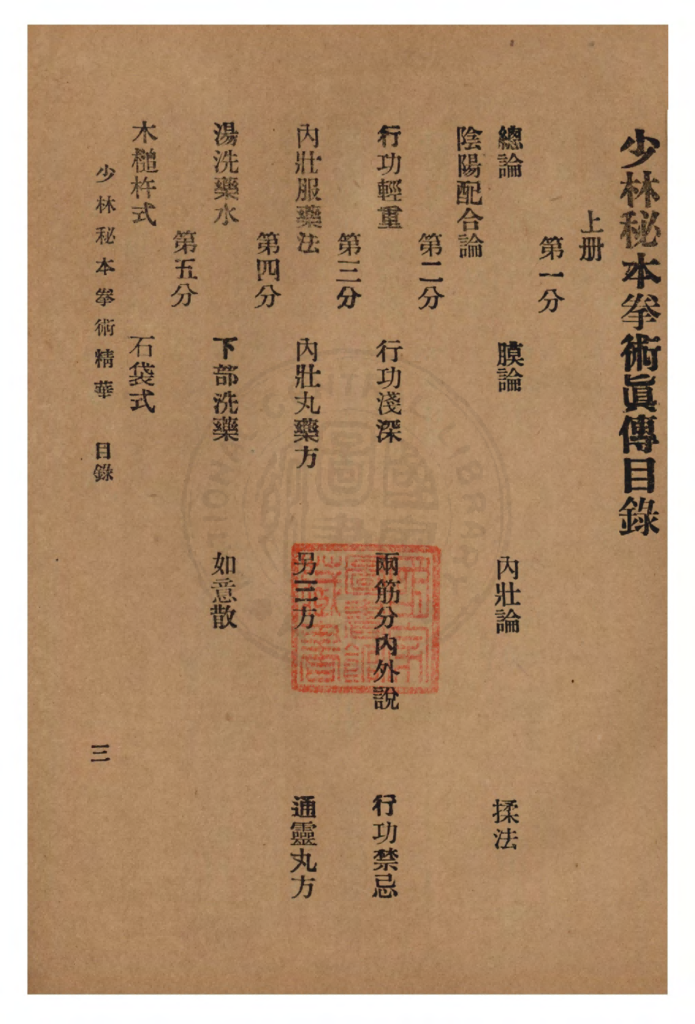 少林秘本拳術眞傳目錄
上册
第一分
總論　膜論　內壯論　揉法
陰陽配合論
第二分
行功輕重　行功淺深　兩筋分內外說　行功禁忌
第三分
內壯服藥法　內壯丸藥方　另三方　通靈丸方
第四分
湯洗藥水　下部洗藥　如意散
第五分
木槌杵式　石袋式
少林秘本拳術精華　目錄　三